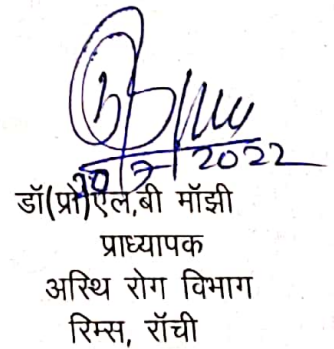 20/7/2022
डॉ(प्रो)एल,बी मॉझी
प्राध्यापक
अस्थि रोग विभाग
रिम्स, रॉची